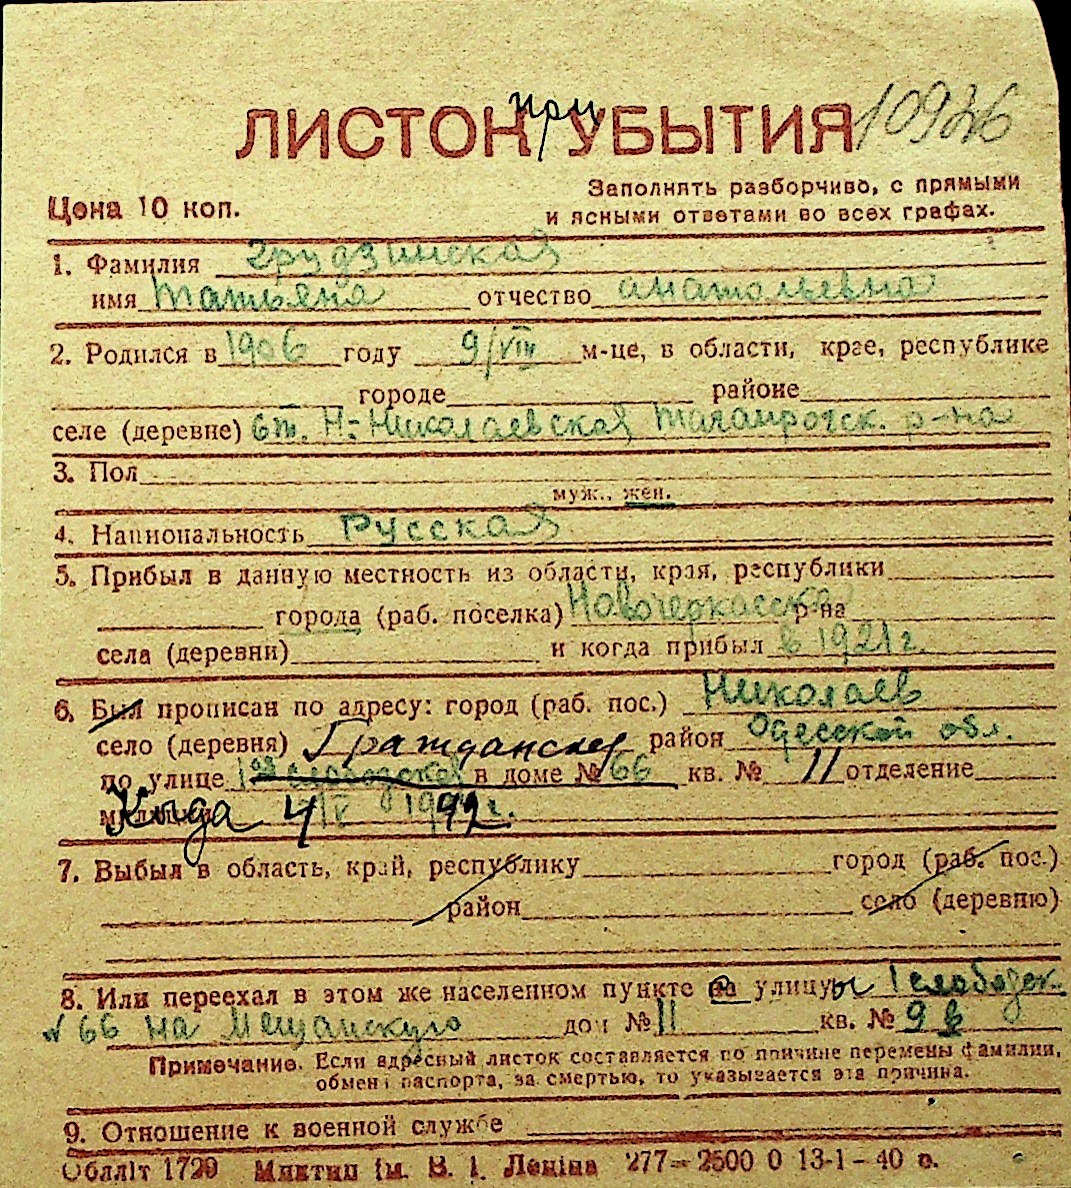 ЛИСТОК при УБЫТИЯ 10936
Цена 10 коп.
Заполнять разборчиво, с прямыми
и ясными ответами во всех графах.
1. Фамилия Грудзинская
имя Татьяна отчество Анатольевна
2. Родился в 1906 году 9/VIII м-це, в области, крае, республике
городе районе
селе (деревне) ст. Н.-Николаевская Таганрогск. р-на
3. Пол
муж., жен.
4. Национальность Русская
5. Прибыл в данную местность из области, края, республики
города (раб. поселка) Новочеркасска р-на
села (деревни) и когда прибыл в 1921 г.
6. Был прописан по адресу: город (раб. пос.) Николаев
село (деревня) Гражданская район Одесской обл.
по улице 1ая слободская в доме № 66 кв. № 11 отделение
милиции Куда 4/IV 1942 г.
7. Выбыл в область, край, республику город (раб. пос.)
район село (деревню)
8. Или переехал в этом же населенном пункте с улицы 1 слободск.
№ 66 на Мещанскую дом № 11 кв. № 9 в
Примечание. Если адресный листок составляется по причине перемены фамилии,
обмена паспорта, за смертью, то указывается эта причина.
9. Отношение к военной службе
Облліт 1720 Миктип ім. В. І. Леніна 277—2500 0 13-1-40 о.